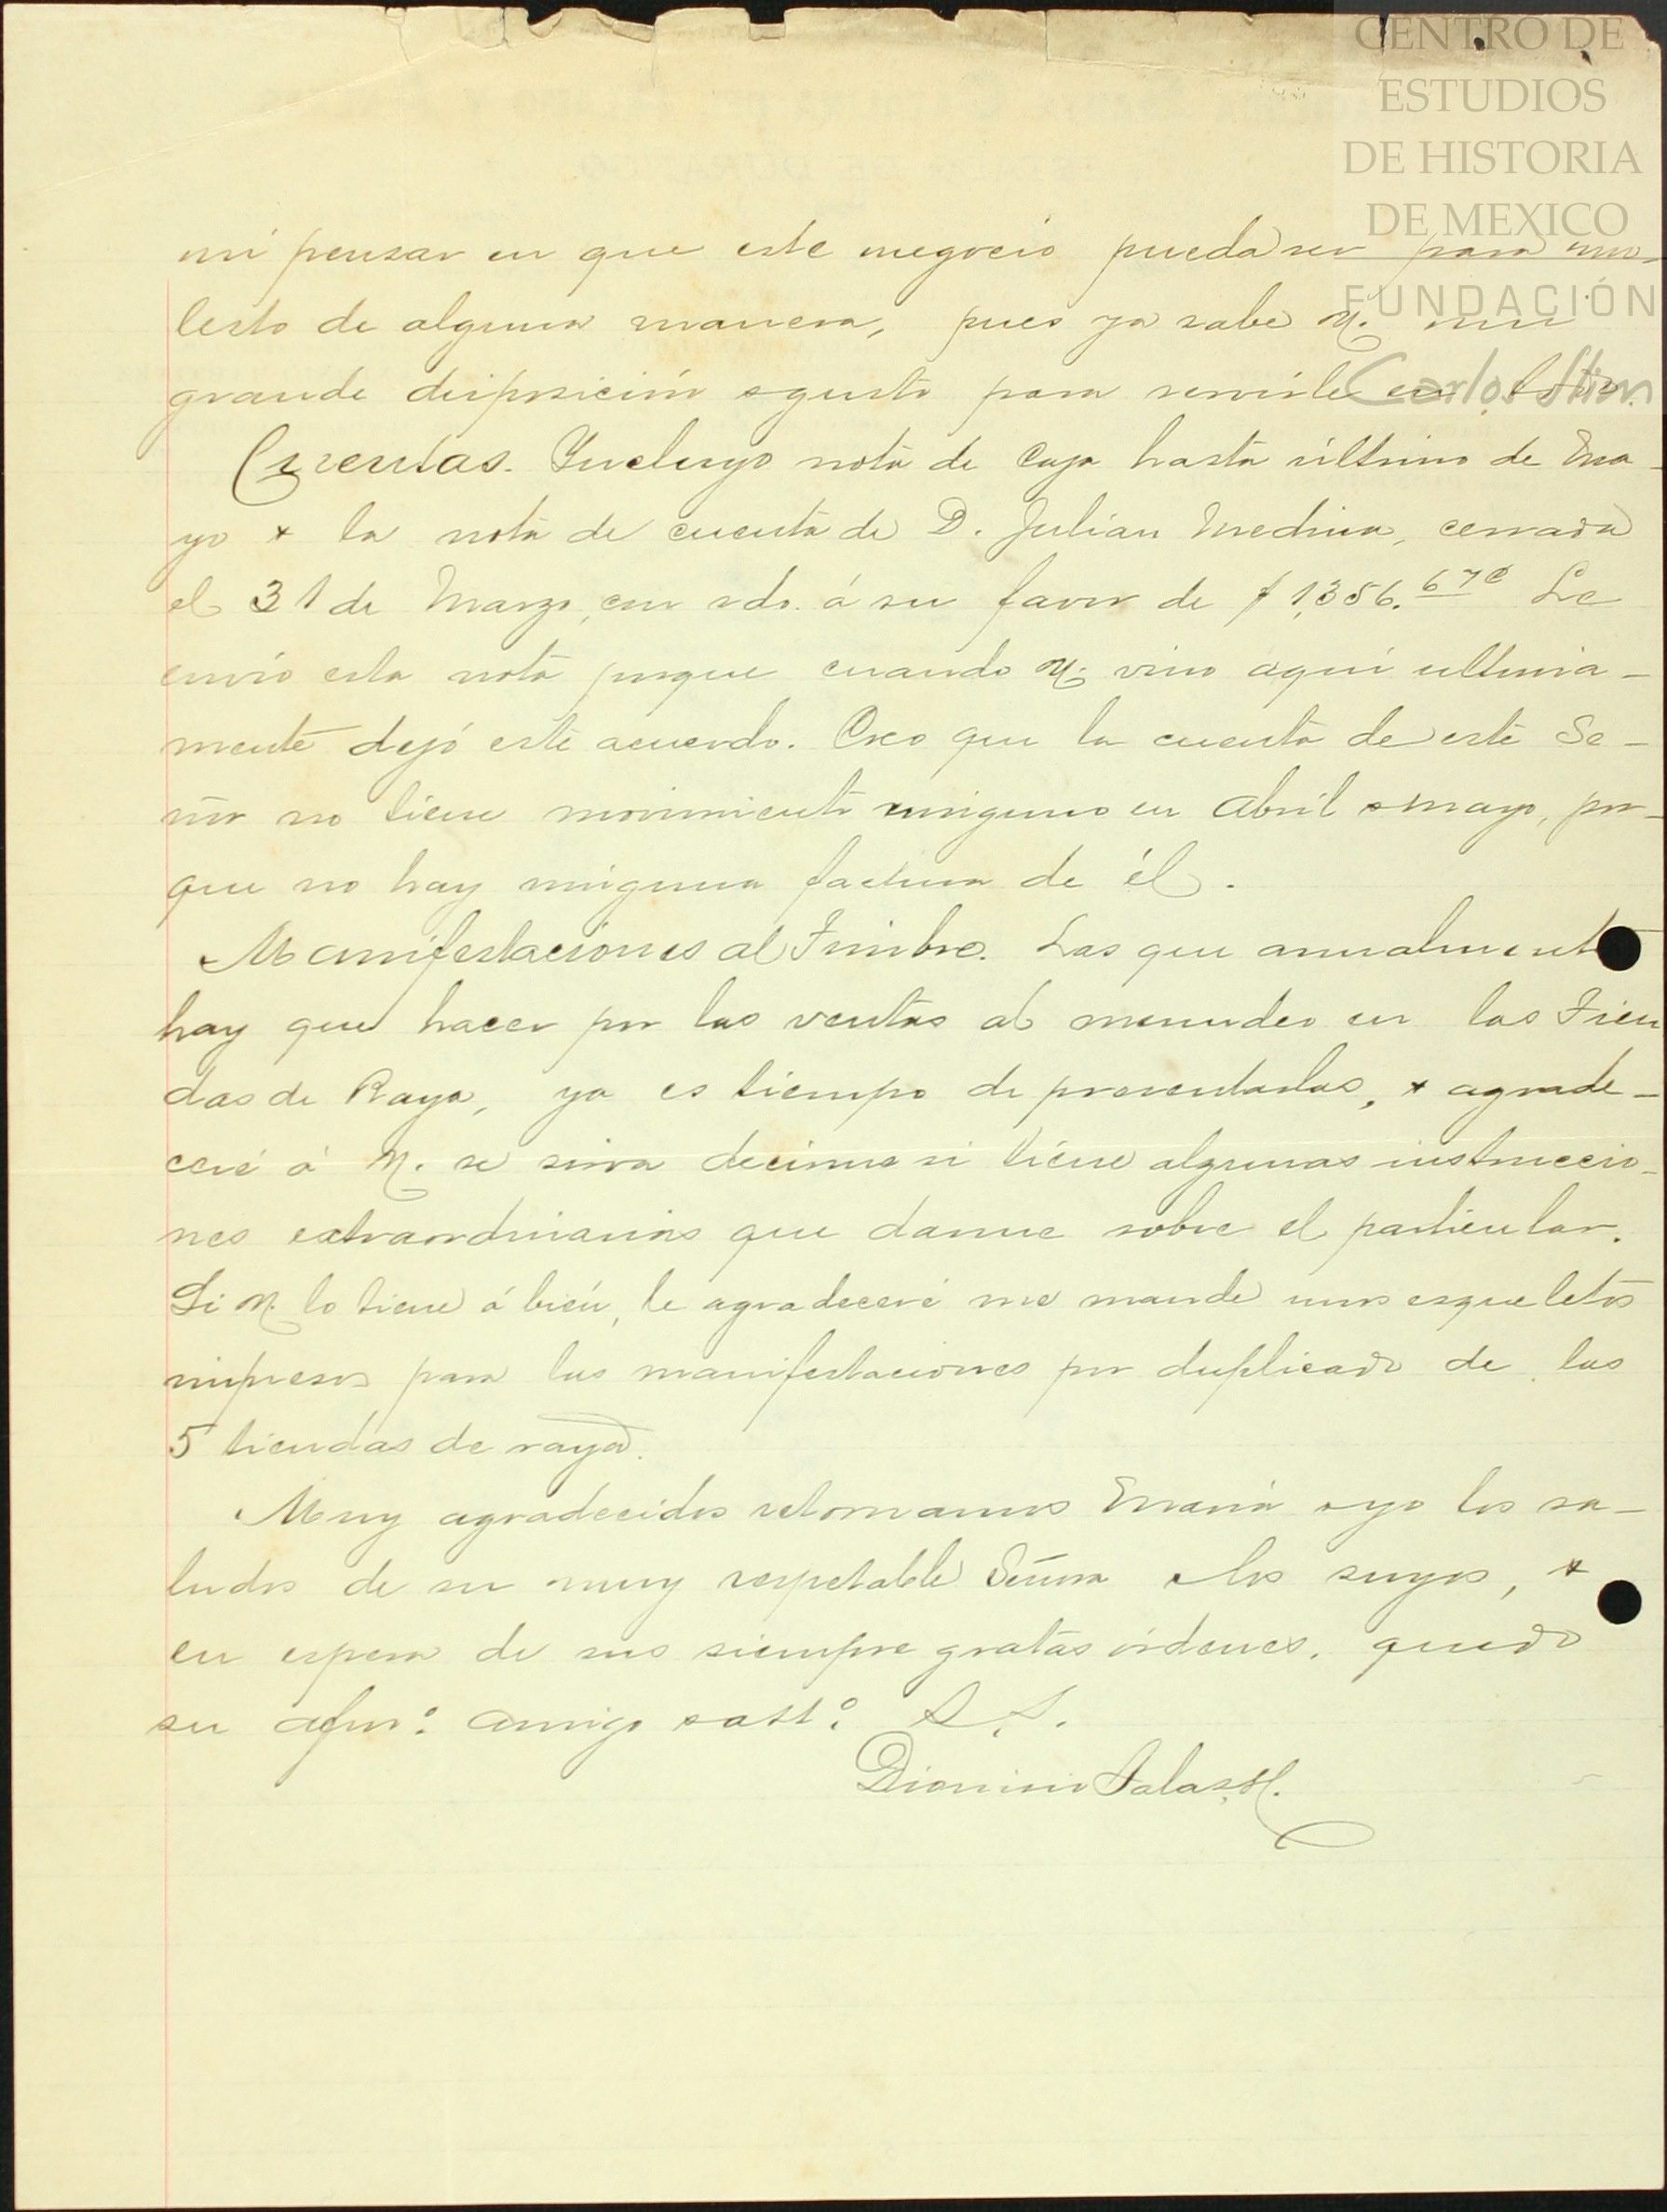 CENTRO DE
ESTUDIOS
DE HISTORIA
DE MEXICO
FUNDACIÓN
Carlos Slim
ni pensar en que este negocio pueda ser para mo-
lesto de alguna manera, pues ya sabe V. mi
grande disposición y gusto para servirle en todo.
Cuentas. Incluyo nota de Caja hasta último de Ma-
yo y la nota de cuenta de D. Julian Medina, cerrada
el 31 de Marzo, con sdo. á su favor de $ 1,356.67¢ Le
envío esta nota porque cuando V. vino aquí ultima-
mente dejó este acuerdo. Creo que la cuenta de este Se-
ñor no tiene movimiento ninguno en Abril y Mayo, por-
que no hay ninguna factura de él.
Manifestaciones al Timbre. Las que anualmente
hay que hacer por las ventas al menudeo en las Tien
das de Raya, ya es tiempo de presentarlas, y agrade-
ceré á V. se sirva decirme si tiene algunas instruccio-
nes extraordinarias que darme sobre el particular.
Si V. lo tiene á bién, le agradeceré me mande unos esqueletos
impresos para las manifestaciones por duplicado de las
5 tiendas de raya.
Muy agradecidos retornamos María y yo los sa-
ludos de su muy respetable Señora y los suyos, y
en espera de sus siempre gratas órdenes, quedo
su afmo. amigo y att.o S. S.
Dionisio Salas H.